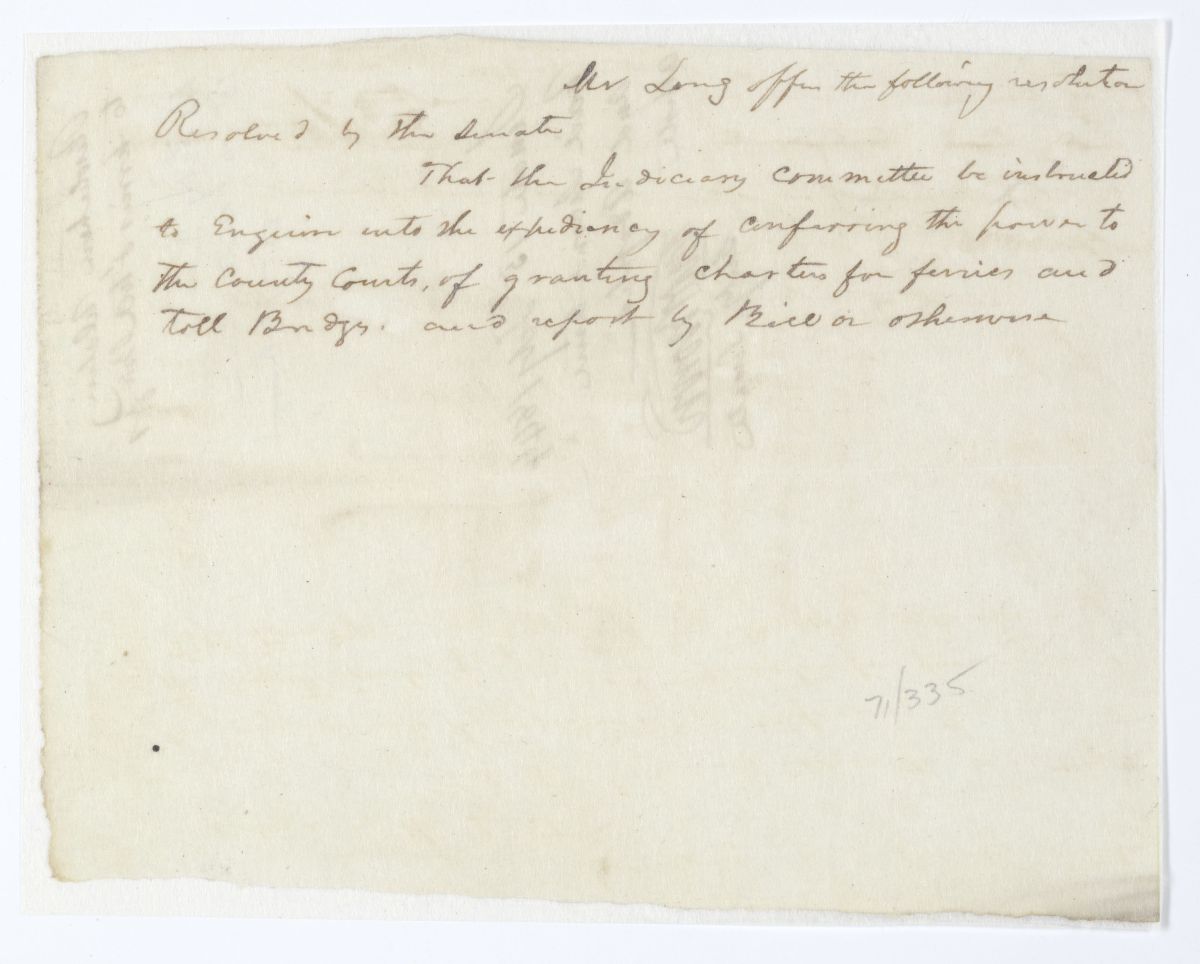 Mr Long offers the following resolution
Resolved by the Senate
That the Judiciary committee be instructed
to Enquire into the expediency of conferring the power to
the County Courts, of granting charters for ferries and
toll Bridges. and report by Bill or otherwise
71/335